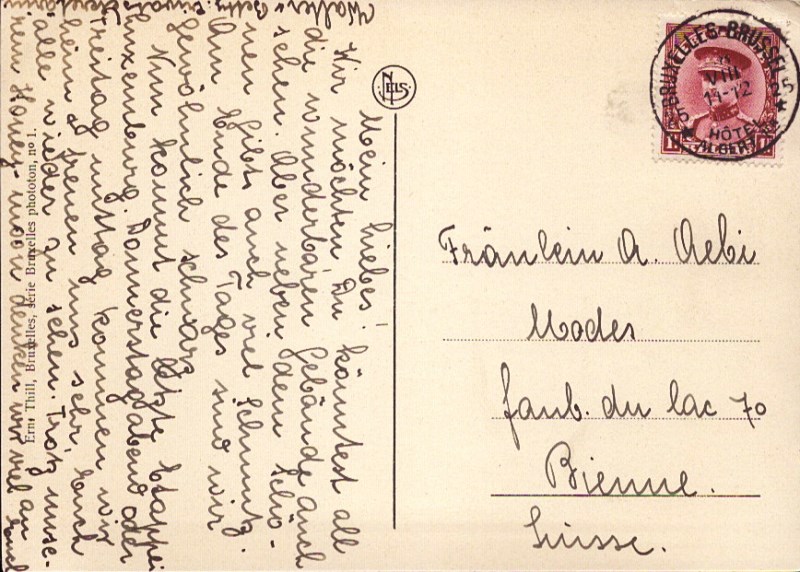 Mein liebes!
Wir möchten Du könntest all
die wunderbaren Gebäude auch
sehen. Aber neben dem Schö-
nen gibts auch viel Schmutz.
Am Ende des Tages sind wir
gewöhnlich schwarz.
Nun kommt die letzte Etappe:
Luxemburg. Donnerstag abend oder
Freitag mittag kommen wir
heim & freuen uns sehr, Euch
alle wieder zu sehen. Trotz unse-
rem Honey-moon denken wir viel an
Euch
Walter & Betty.
Ern. Thill, Bruxelles, série Bruxelles phototon, no 1.
NELS
5 BRUXELLES-BRUSSEL 5
VIII
11-12
HÔTEL
ALBERT
Fräulein A. Aebi
Modes
faub. du lac 70
Bienne.
Suisse.